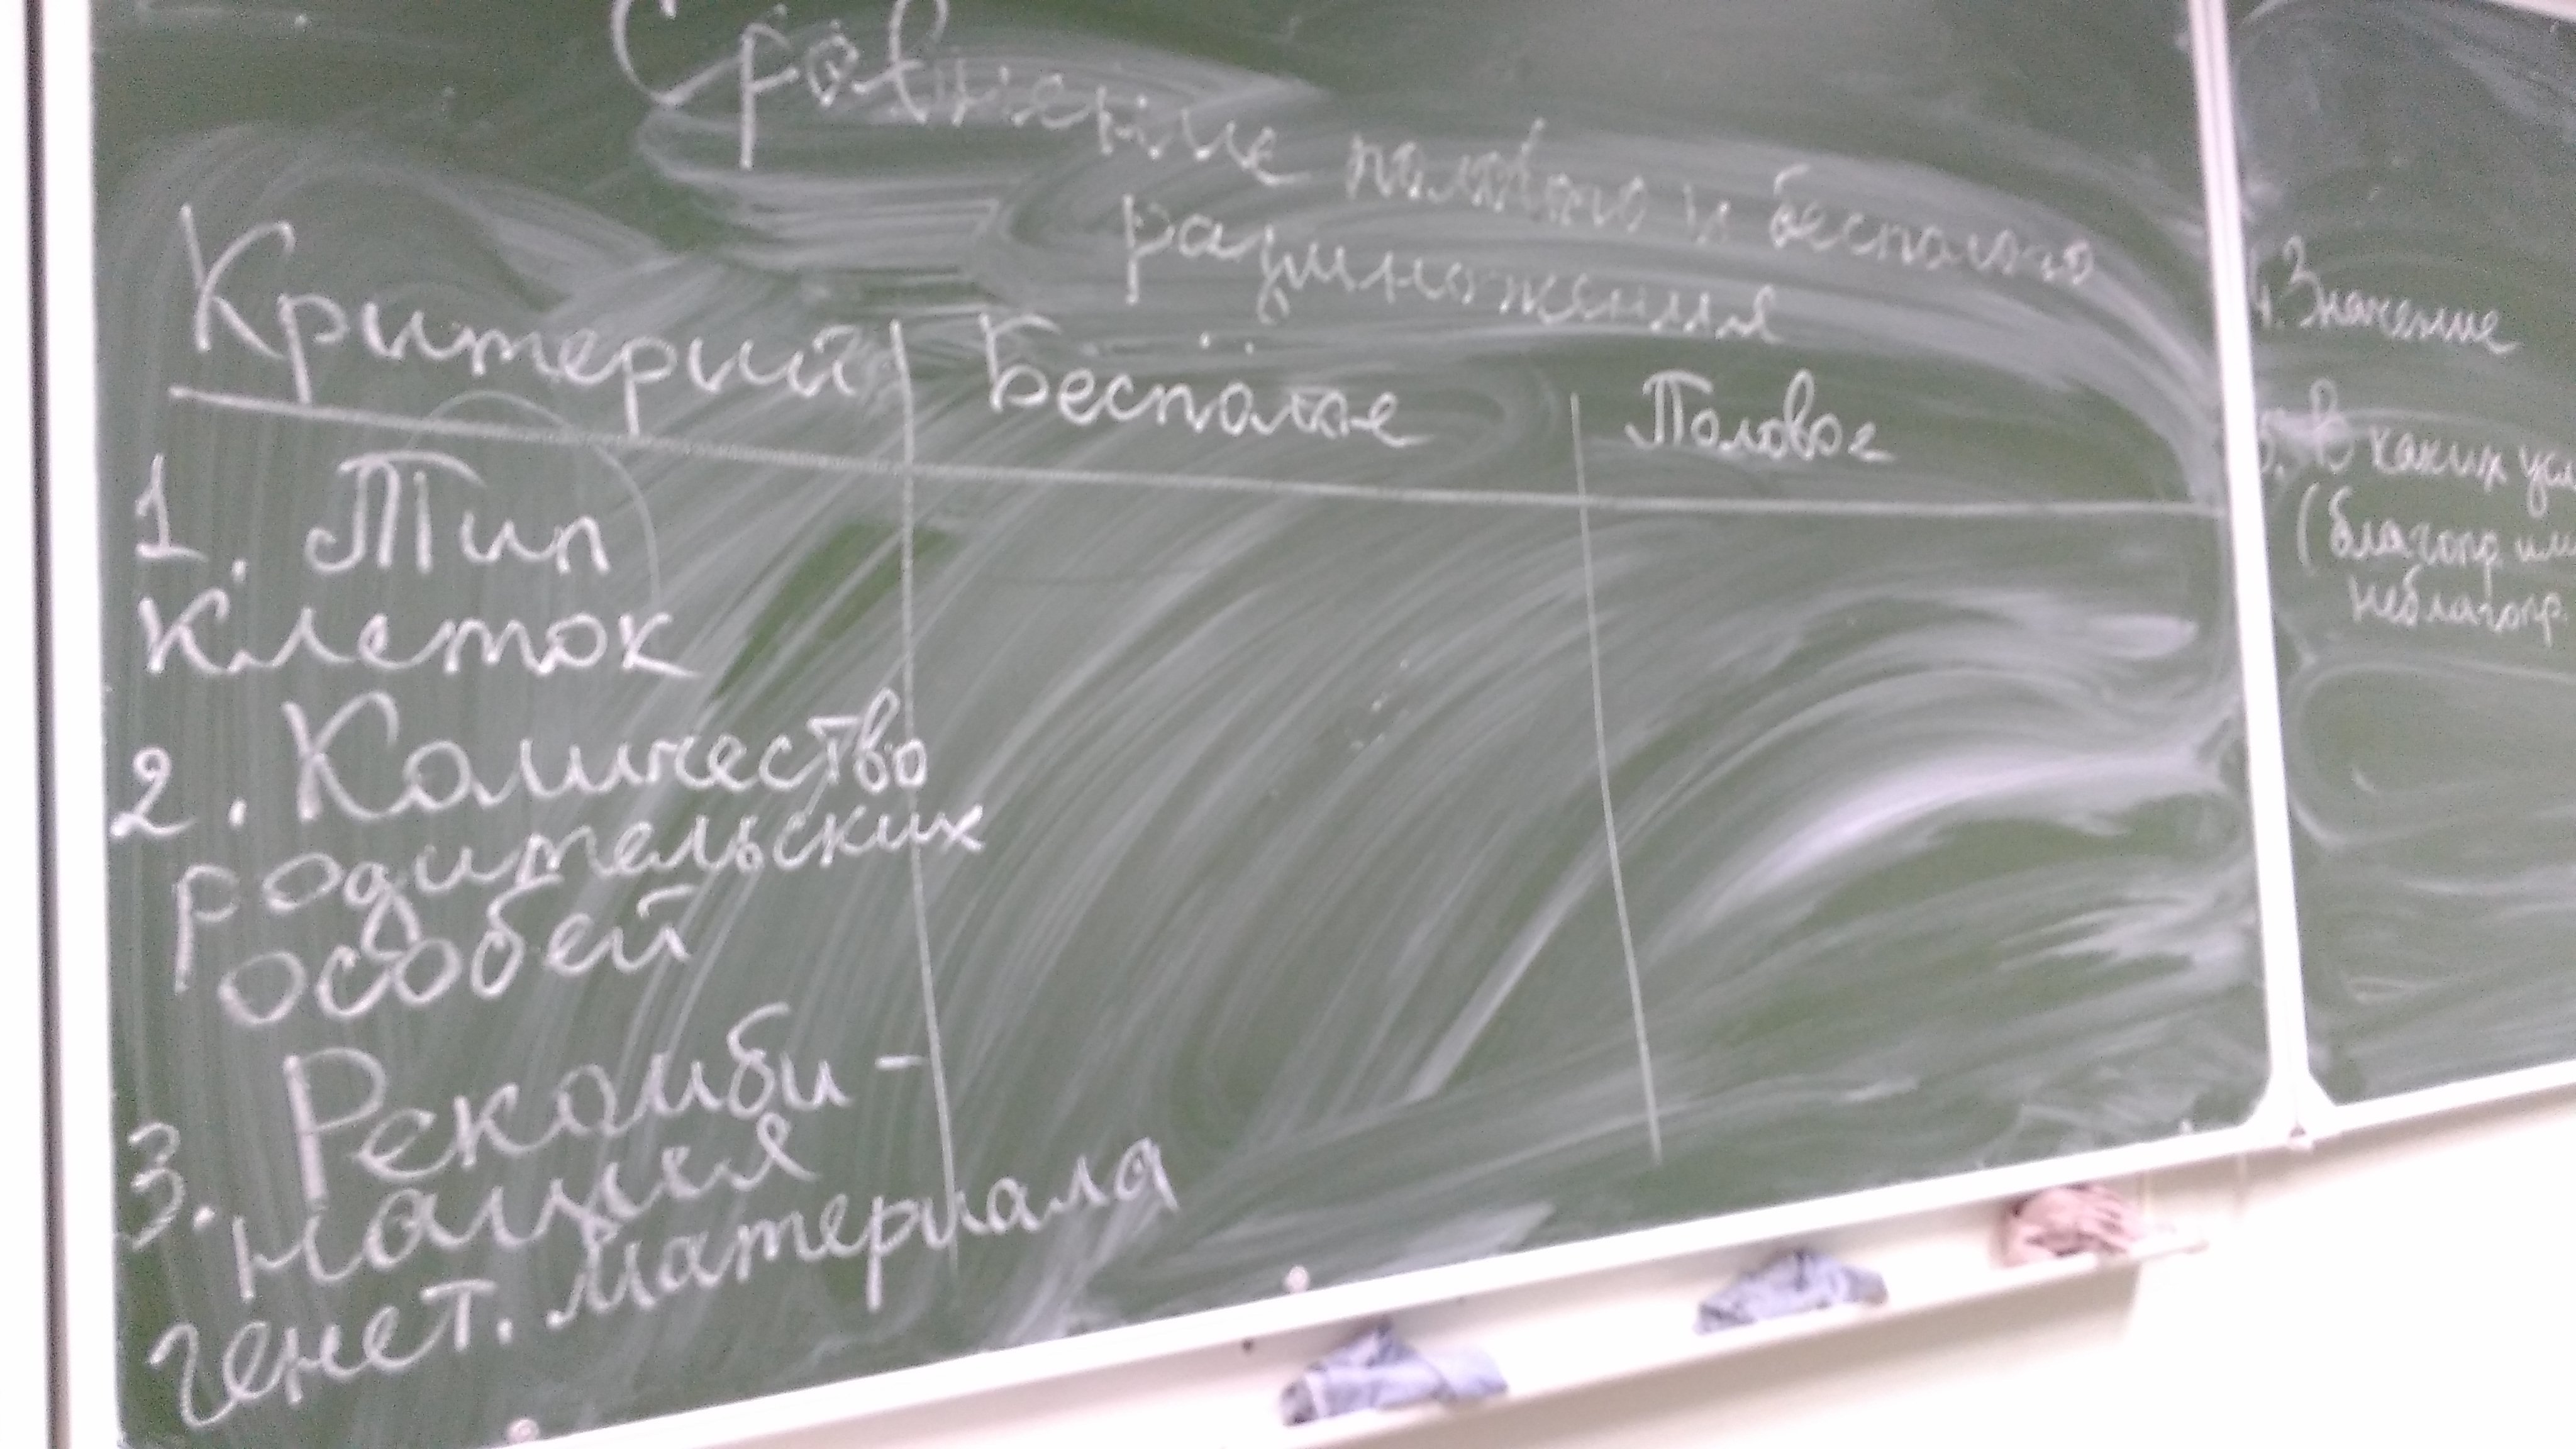 Сравнение полового и бесполого
размножения
Критерий Бесполое Половое
1. Тип
клеток
2. Количество
родительских
особей
3. Рекомби-
нация
генет. материала
4. Значение
5. В каких усл
(благопр. или
неблагопр.